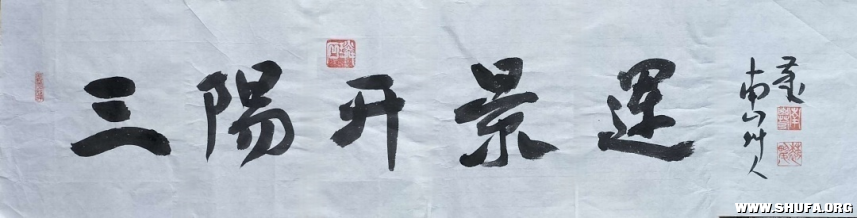 三陽开景運
南山艸人
WWW.SHUFA.ORG